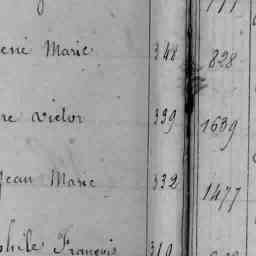 René Marie 348 828
re Victor 339 1639
Jean Marie 332 1477
phile François 319